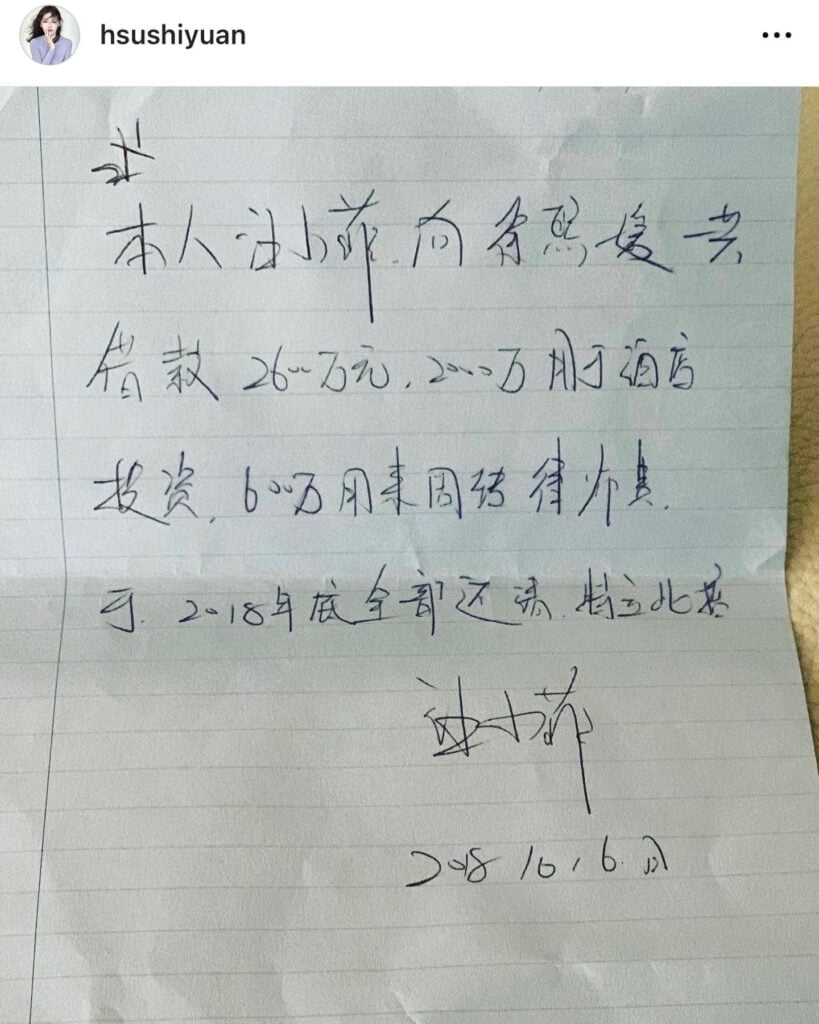 hsushiyuan
本人汪小菲.向徐熙媛共
借款 2600万元,2000万用于酒店
投资,600万用来周转律师费.
于.2018年底全部还清.特立此
汪小菲
2018 10,6.日